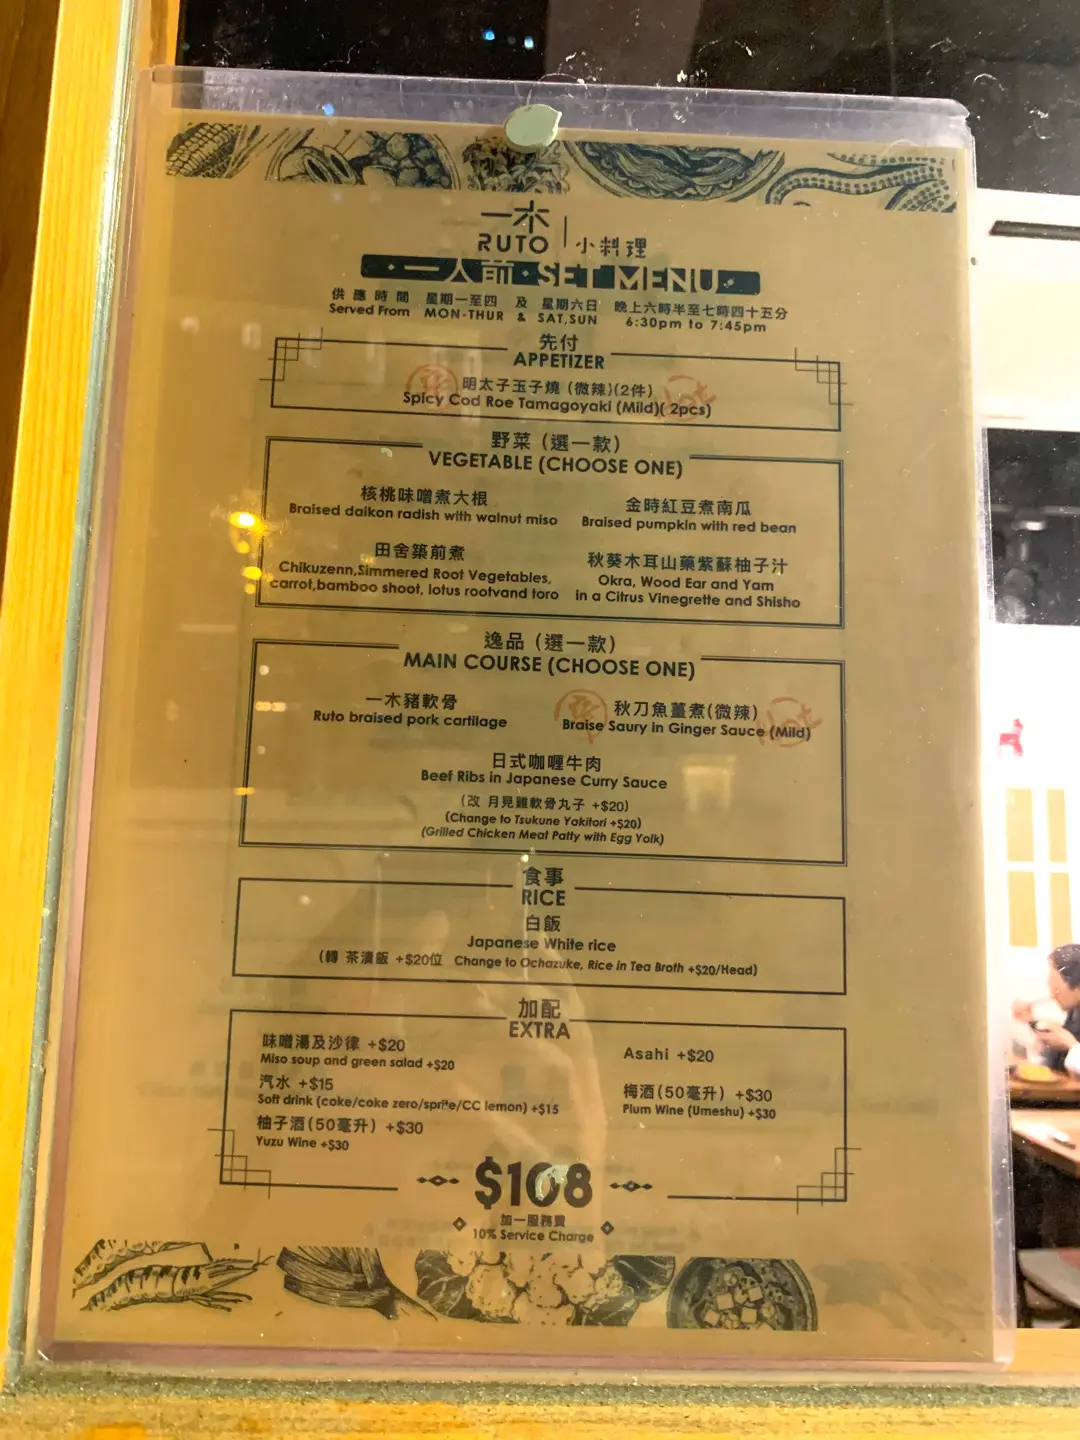 一木
RUTO
小料理
一人前・SET MENU
供應時間 星期一至四 及 星期六日 晚上六時半至七時四十五分
Served From MON-THUR & SAT,SUN 6:30pm to 7:45pm
先付
APPETIZER
辛 明太子玉子燒 (微辣)(2件) Hot
Spicy Cod Roe Tamagoyaki (Mild)( 2pcs)
野菜 (選一款)
VEGETABLE (CHOOSE ONE)
核桃味噌煮大根
Braised daikon radish with walnut miso
金時紅豆煮南瓜
Braised pumpkin with red bean
田舍築前煮
Chikuzenn,Simmered Root Vegetables,
carrot,bamboo shoot, lotus rootvand toro
秋葵木耳山藥紫蘇柚子汁
Okra, Wood Ear and Yam
in a Citrus Vinegrette and Shisho
逸品 (選一款)
MAIN COURSE (CHOOSE ONE)
一木豬軟骨
Ruto braised pork cartilage
辛 秋刀魚薑煮(微辣) Hot
Braise Saury in Ginger Sauce (Mild)
日式咖喱牛肉
Beef Ribs in Japanese Curry Sauce
(改 月見雞軟骨丸子 +$20)
(Change to Tsukune Yakitori +$20)
(Grilled Chicken Meat Patty with Egg Yolk)
食事
RICE
白飯
Japanese White rice
(轉 茶漬飯 +$20位 Change to Ochazuke, Rice in Tea Broth +$20/Head)
加配
EXTRA
味噌湯及沙律 +$20
Miso soup and green salad +$20
汽水 +$15
Soft drink (coke/coke zero/sprite/CC lemon) +$15
柚子酒(50毫升) +$30
Yuzu Wine +$30
Asahi +$20
梅酒(50毫升) +$30
Plum Wine (Umeshu) +$30
$108
加一服務費
10% Service Charge